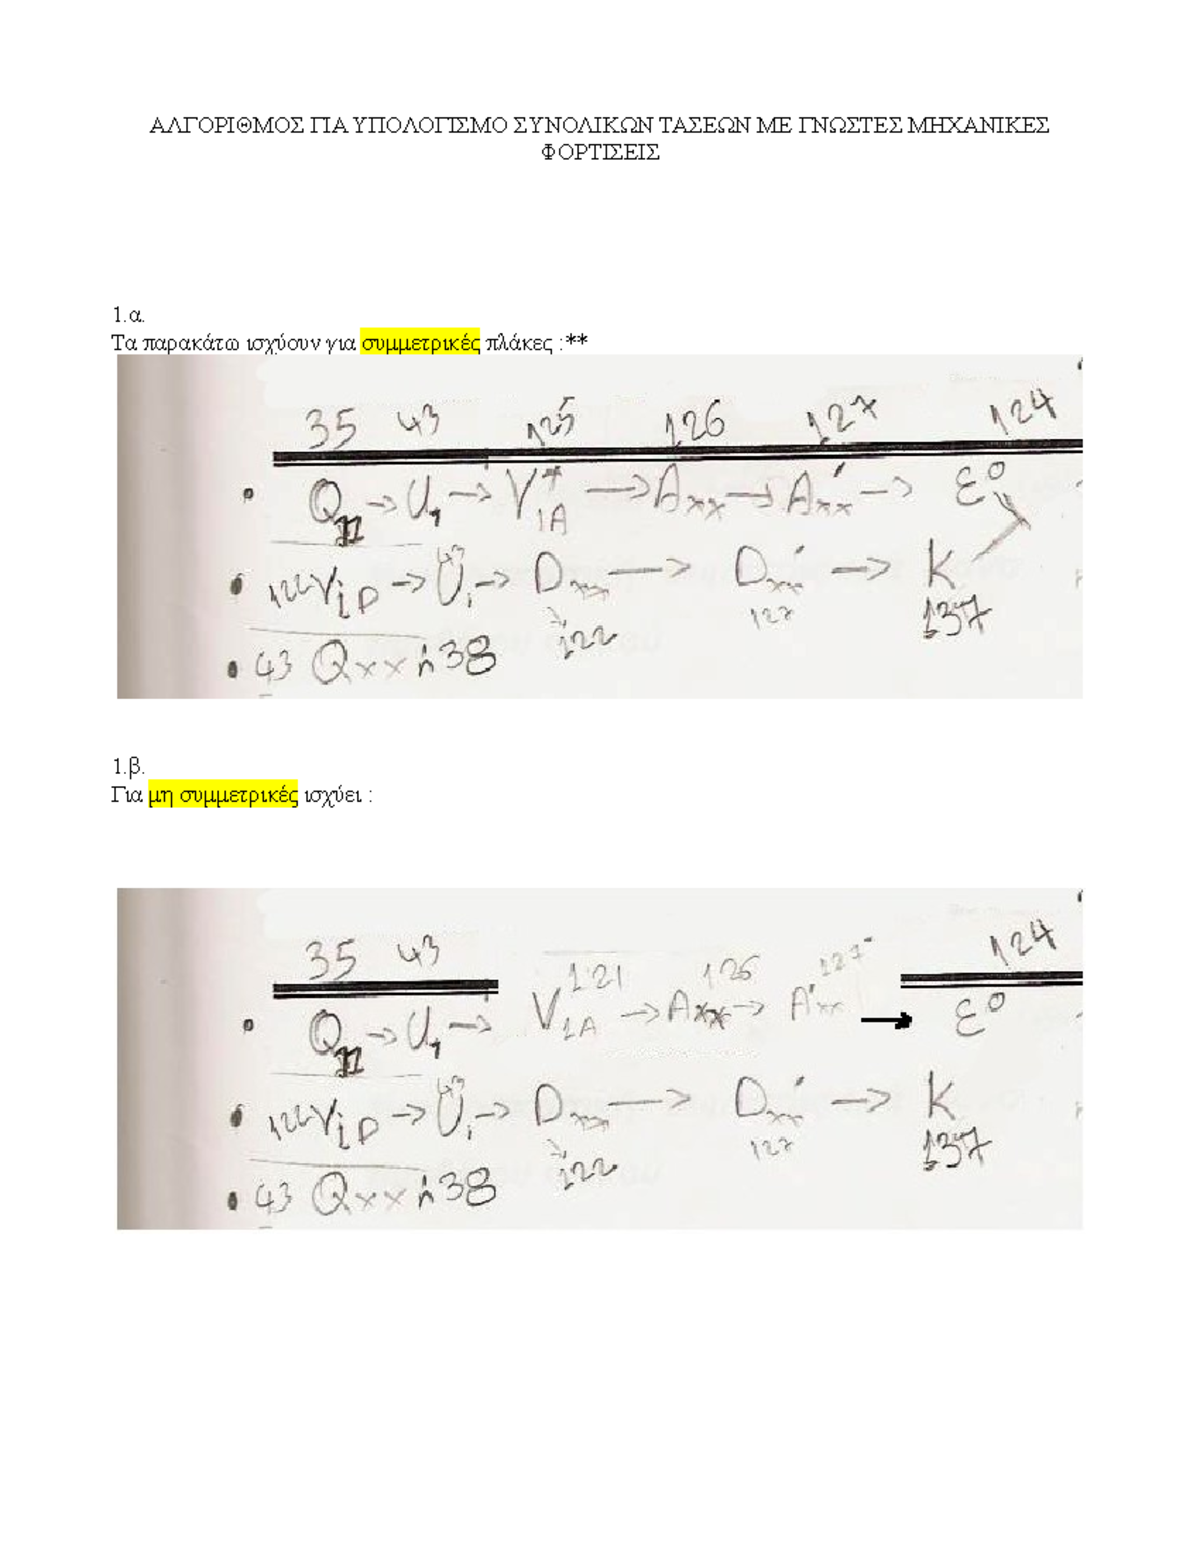 ΑΛΓΟΡΙΘΜΟΣ ΓΙΑ ΥΠΟΛΟΓΙΣΜΟ ΣΥΝΟΛΙΚΩΝ ΤΑΣΕΩΝ ΜΕ ΓΝΩΣΤΕΣ ΜΗΧΑΝΙΚΕΣ
ΦΟΡΤΙΣΕΙΣ
1.α.
Τα παρακάτω ισχύουν για συμμετρικές πλάκες :**
35 43 125 126 127 124
• Q → U₁ → V*₁A → Axx → A'xx → ε⁰
• 122 ViD → U₁ → Dxx → D'xx → K
43 122 127 137
• 43 Qxx ή 38
1.β.
Για μη συμμετρικές ισχύει :
35 43 121 126 127 124
• Q → U₁ → V₁A → Axx → A'xx → ε⁰
• 122 ViD → U₁ → Dxx → D'xx → K
43 122 127 137
• 43 Qxx ή 38